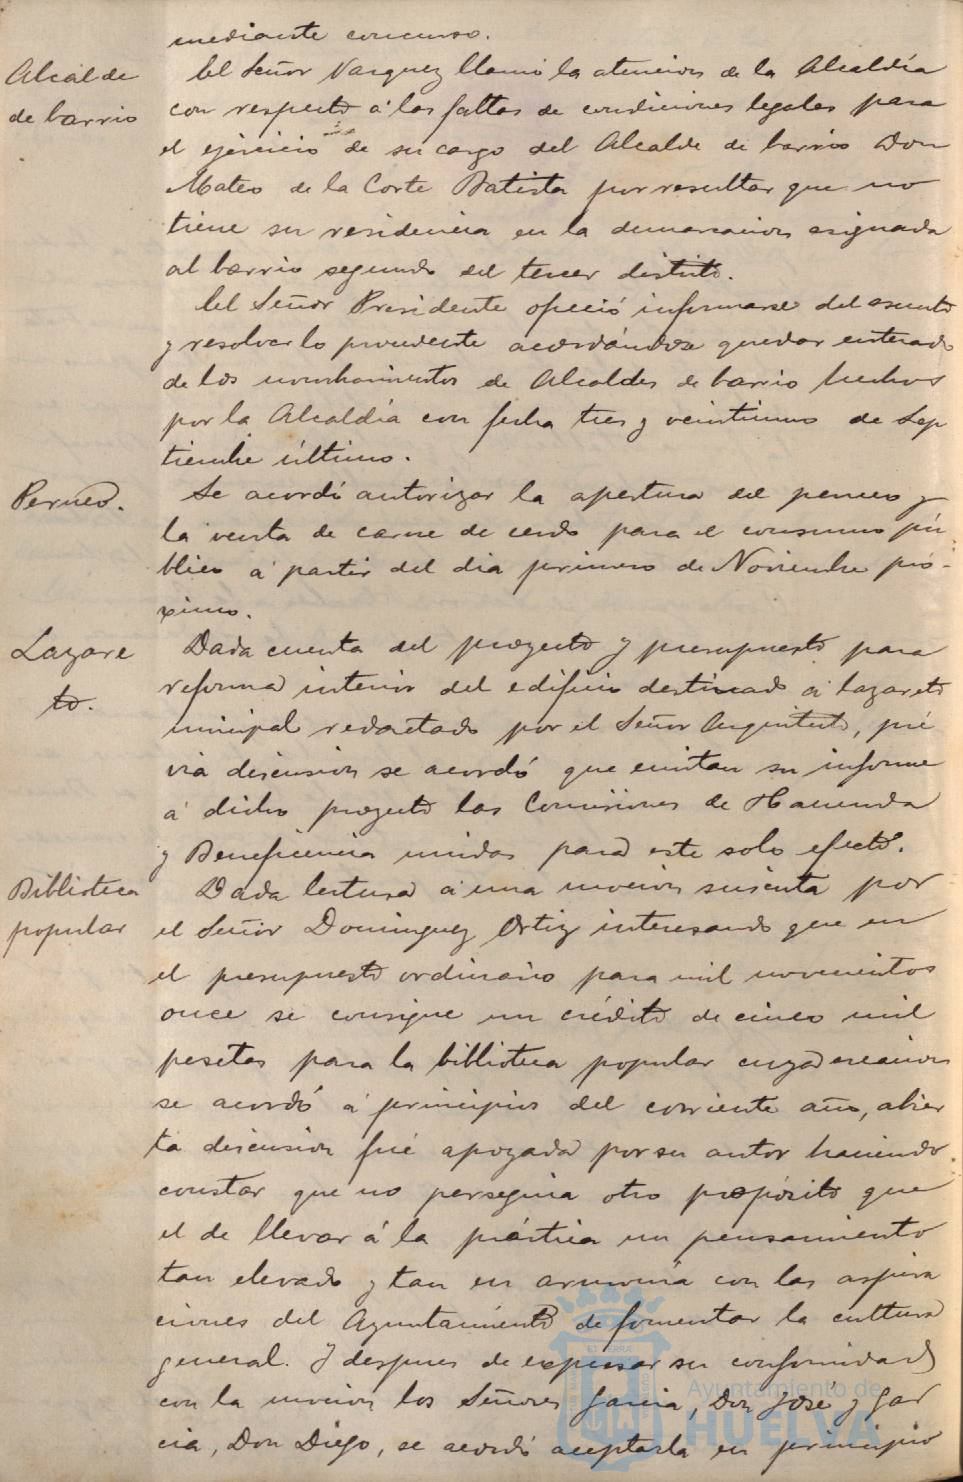 mediante concurso.
Alcalde
de barrio
El Señor Vazquez llamó la atencion de la Alcaldía
con respecto á las faltas de condiciones legales para
el ejercicio de su cargo del Alcalde de barrio Don
Mateo de la Corte Batista por resultar que no
tiene su residencia en la demarcacion asignada
al barrio segundo del tercer distrito.
El Señor Presidente ofreció informarse del asunto
y resolver lo procedente acordándose quedar enterado
de los nombramientos de Alcaldes de barrio hechos
por la Alcaldía con fecha tres y veintiuno de Sep
tiembre último.
Perneo.
Se acordó autorizar la apertura del perneo y
la venta de carne de cerdo para el consumo pú
blico á partir del dia primero de Noviembre pró-
ximo.
Lazare
to.
Dada cuenta del proyecto y presupuesto para
reforma interior del edificio destinado á lazareto
municipal redactado por el Señor Arquitecto, pré
via discusion se acordó que emitan su informe
á dicho proyecto las Comisiones de Hacienda
y Beneficencia unidas para este solo efecto.
Biblioteca
popular
Dada lectura á una mocion suscrita por
el Señor Dominguez Ortiz interesando que en
el presupuesto ordinario para mil novecientos
once se consigne un crédito de cinco mil
pesetas para la biblioteca popular cuya creacion
se acordó á principios del corriente año, abier
ta discusion fué apoyada por su autor haciendo
constar que no perseguia otro propósito que
el de llevar á la práctica un pensamiento
tan elevado y tan en armonía con las aspira
ciones del Ayuntamiento de fomentar la cultura
general. Y despues de expresar su conformidad
con la mocion los Señores Garcia, Don José y Gar
cia, Don Diego, se acordó aceptarla en principio
Ayuntamiento de
HUELVA